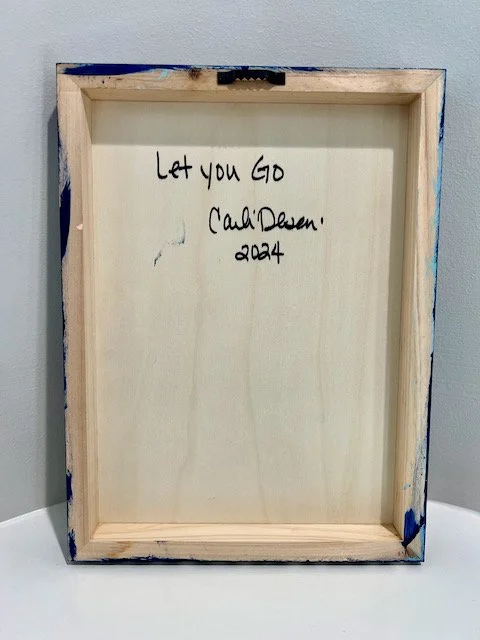 Let you Go
Carli Desen
2024